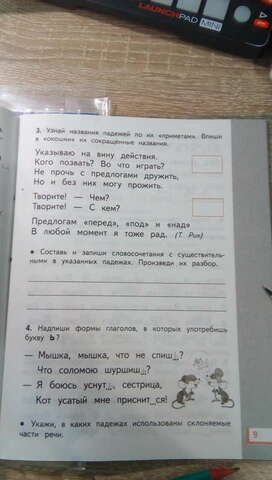 LAUNCHPAD MINI
3. Узнай названия падежей по их «приметам». Впиши
в «окошки» их сокращённые названия.
Указываю на вину действия.
Кого позвать? Во что играть?
Не прочь с предлогами дружить,
Но и без них могу прожить.
Творите! — Чем?
Творите! — С кем?
Предлогам «перед», «под» и «над»
В любой момент я тоже рад. (Т. Рик)
• Составь и запиши словосочетания с существитель-
ными в указанных падежах. Произведи их разбор.
4. Надпиши формы глаголов, в которых употребишь
букву ь?
— Мышка, мышка, что не спиш..?
Что соломою шуршиш..?
— Я боюсь уснут.., сестрица,
Кот усатый мне приснит..ся!
• Укажи, в каких падежах использованы склоняемые
части речи.
9